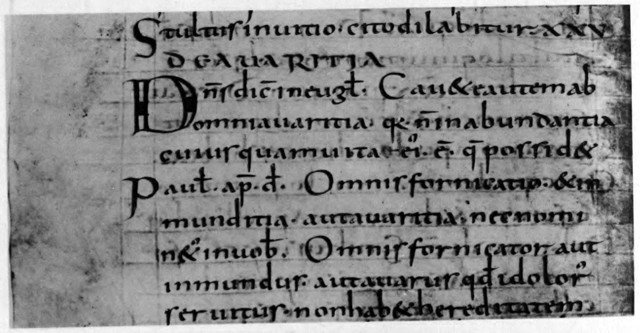 Stultus in uitio. cito dilabitur. XXV
DE AVARITIA
Dn̄s dic̄ in eugł. Cau&e autem ab
omni auaritia. q̄ n̄ in abundantia
cuiusquam uita ei᾽. ē. q̄ possid&
Pauł. ap̄. d̄. Omnis fornicatio. & in
munditia. aut auaritia. nec nomi
n&᾽ in uob̄. Omnis fornicator. aut
inmundus. aut auarus qđ idolor᾽
seruitus. non hab& hereditatem